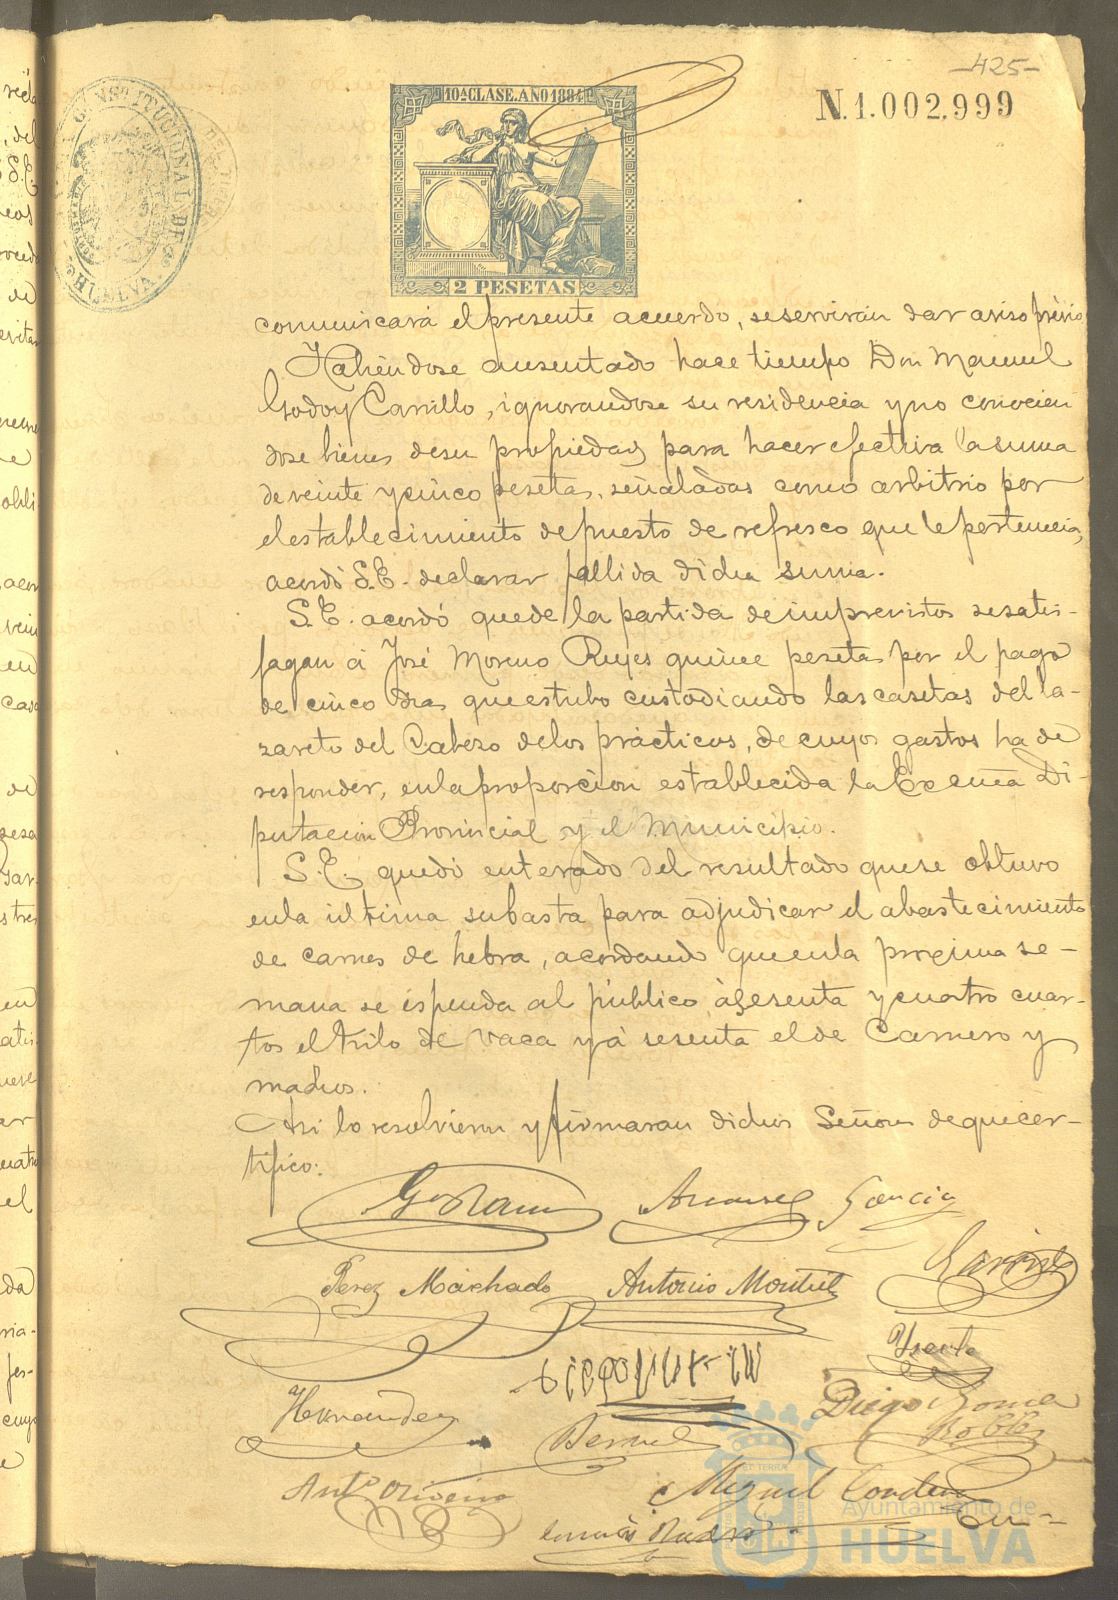 -425-
10ª CLASE. AÑO 1884
N. 1.002.999
CONSTITUCIONAL DE
HUELVA
2 PESETAS
comunicará el presente acuerdo, se servirán dar aviso prévio
Habiéndose ausentado hace tiempo Don Manuel
Godoy Carrillo, ignorandose su residencia y no conocien
dose bienes de su propiedad para hacer efectiva la suma
de veinte y cinco pesetas, señaladas como arbitrio por
el establecimiento de puesto de refresco que le pertenecia,
acordó S.E. declarar fallida dicha suma.
S.E. acordó que de la partida de imprevistos se satis-
fagan á José Moreno Reyes quince pesetas por el pago
de cinco dias que estubo custodiando las casetas del la-
zareto del Cabezo de los prácticos, de cuyos gastos ha de
responder, en la proporcion establecida la Excma Di-
putacion Provincial y el Municipio.
S.E. quedó enterado del resultado que se obtuvo
en la última subasta para adjudicar el abastecimiento
de carnes de hebra, acordando que en la proxima se-
mana se espenda al público á sesenta y cuatro cuar-
tos el kilo de vaca y á sesenta el de Carnero y
machos.
Asi lo resolvieron y firmaran dichos Señores de que cer-
tifico:
Garcia
Perez Machado Antonio Montiel
Hernandez
Bernal
Diego Gomez
Robles
Antº Oliveira
Miguel Cordero
Ayuntamiento de
HUELVA